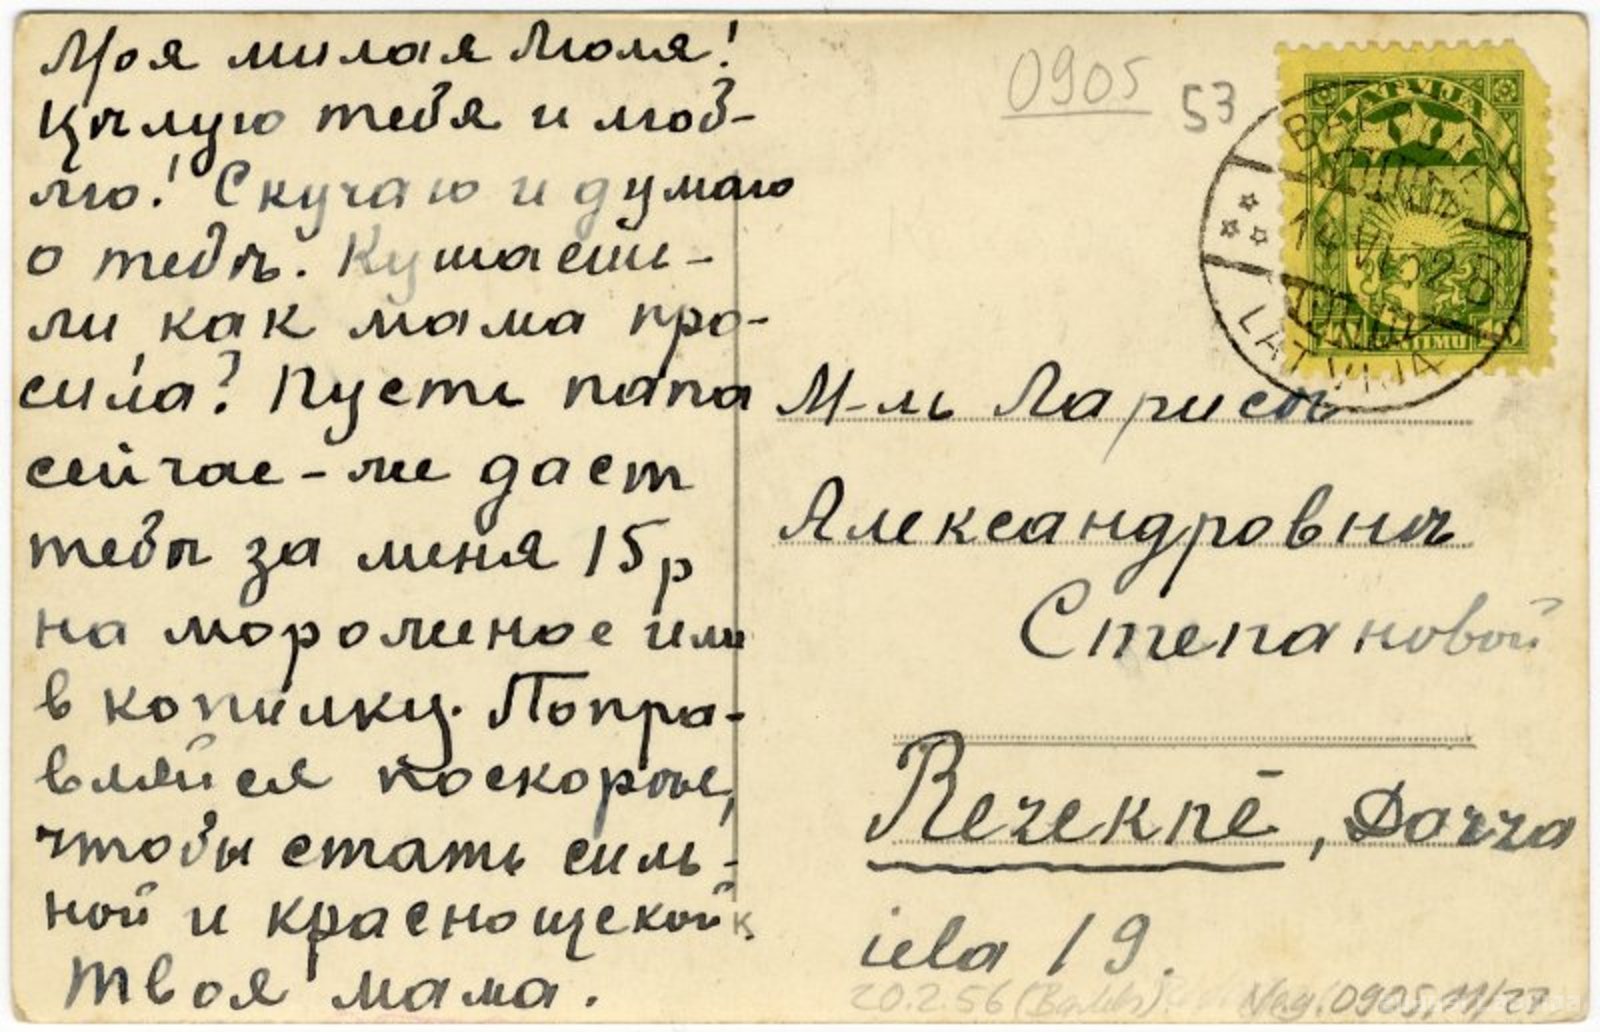 Моя милая Люля!
Цѣлую тебя и люб-
лю! Скучаю и думаю
о тебѣ. Кушаешь-
ли, как мама про-
сила? Пусть папа
сейчас-же даст
тебѣ за меня 15 р
на мороженое или
в копилку. Попра-
вляйся поскорѣе,
чтобы стать силь-
ной и краснощекой.
Твоя мама.
0905
53
LATVIJA
LATVIJA
М-ль Ларисѣ
Александровнѣ
Степановой
Rezeknē, Darza
iela 19.
20.2.56
0905,11/27